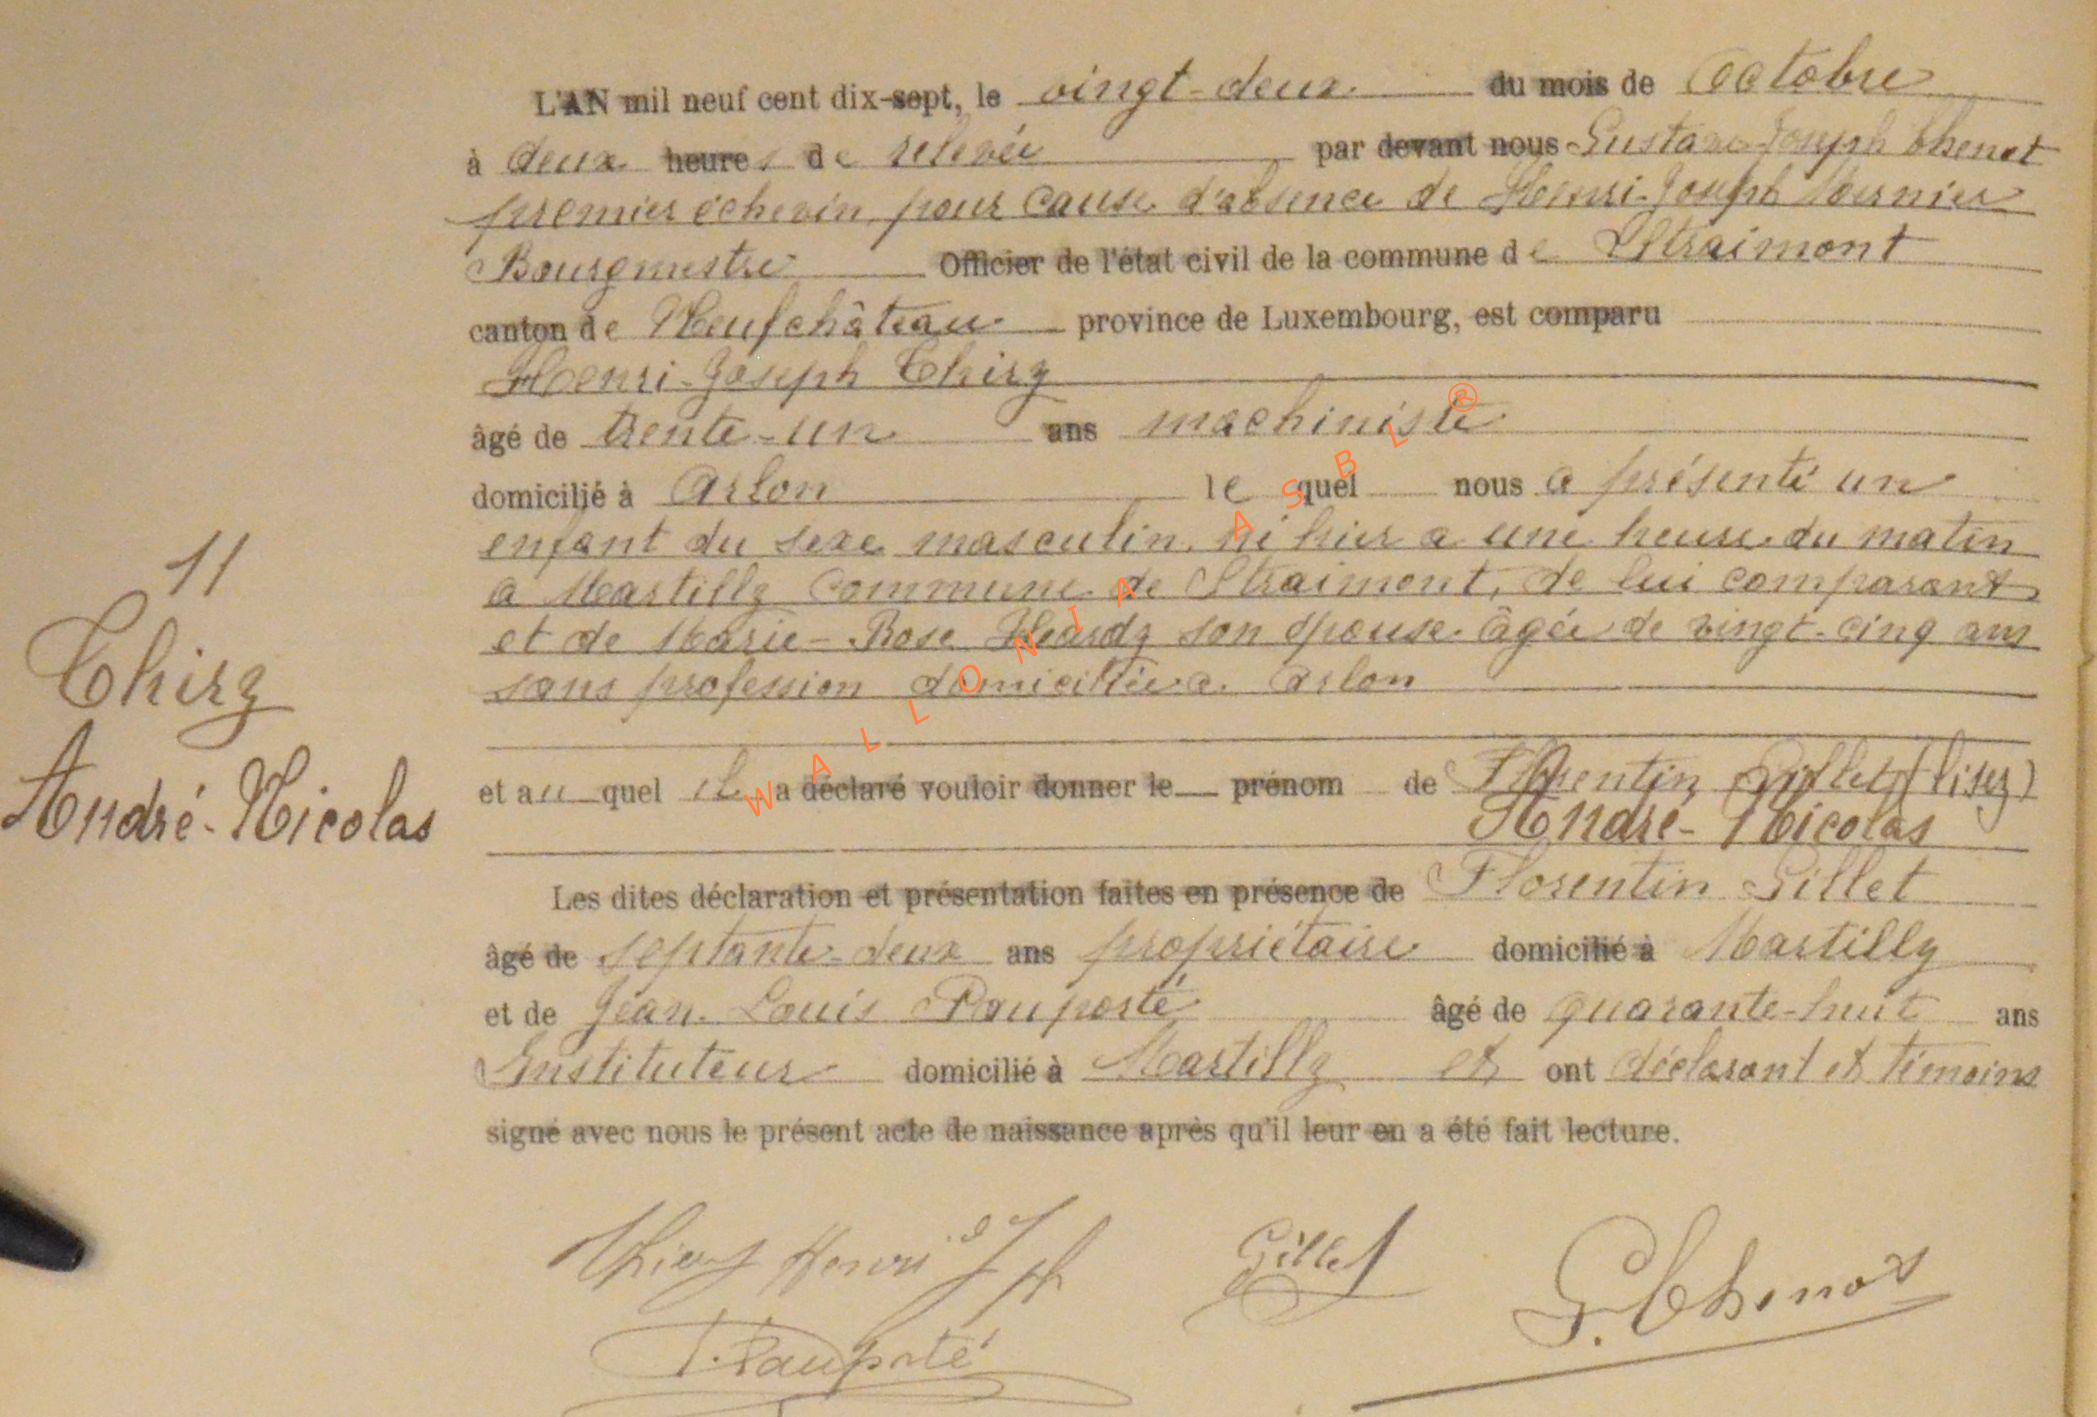 L'AN mil neuf cent dix-sept, le vingt-deux du mois de Octobre
à deux heures de relevée par devant nous Gustave-Joseph Thenot
premier échevin, pour cause d'absence de Henri-Joseph Wernier
Bourgmestre Officier de l'état civil de la commune de Straimont
canton de Neufchâteau province de Luxembourg, est comparu
Henri-Joseph Thiry
âgé de trente-un ans machiniste
domicilié à Arlon lequel nous a présenté un
enfant du sexe masculin, né hier a une heure du matin
a Martilly commune de Straimont, de lui comparant
et de Marie-Rose Heardy son épouse âgée de vingt-cinq ans
sans profession domiciliée a Arlon
et auquel il a déclaré vouloir donner le prénom de Florentin Gillet (lisez)
André-Nicolas
Les dites déclaration et présentation faites en présence de Florentin Gillet
âgé de septante-deux ans propriétaire domicilié à Martilly
et de Jean-Louis Pauporté âgé de quarante-huit ans
Instituteur domicilié à Martilly et ont déclarant et témoins
signé avec nous le présent acte de naissance après qu'il leur en a été fait lecture.
11
Thiry
André-Nicolas
Thiry Henri Jph Gillet G. Thenot
Pauporté
WALLONIA ASBL ®